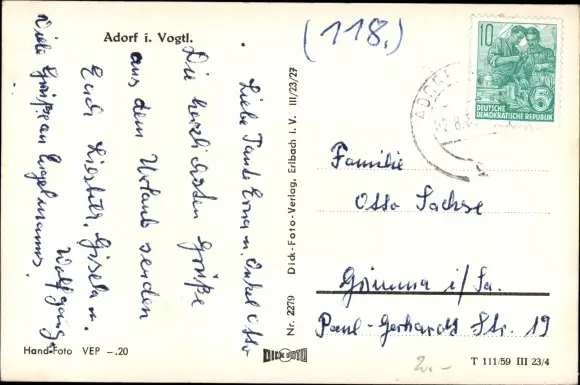 Adorf i. Vogtl.
(118.)
Liebe Tante Erna u. Onkel Otto
Die herzlichsten Grüße
aus dem Urlaub senden
Euch Liesbet, Gisela u.
Wolfgang.
Viele Grüße an Engelmanns.
Hand-Foto VEP -.20
Nr. 2279 Dick-Foto-Verlag, Erlbach i. V. III/23/27
DICK FOTO
10
5
DEUTSCHE
DEMOKRATISCHE REPUBLIK
ADORF
Familie
Otto Sachse
Grimma i/Sa.
Paul-Gerhardt Str. 19
2.-
T 111/59 III 23/4